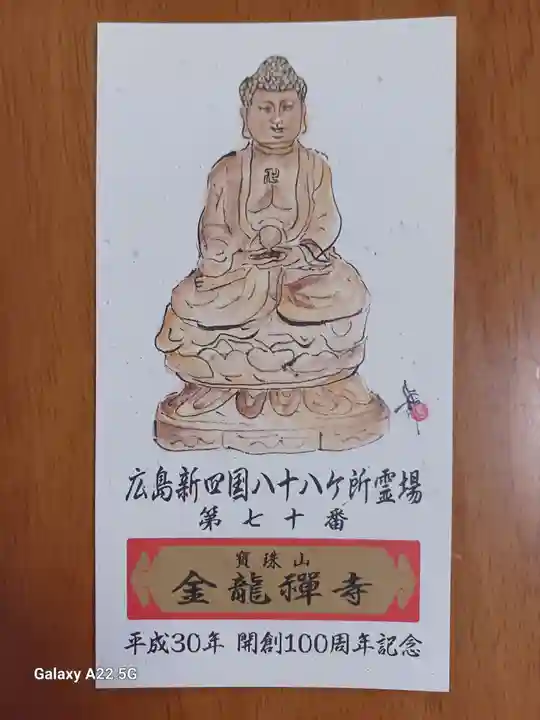 卍
広島新四国八十八ケ所霊場
第七十番
寶珠山
金龍禪寺
平成30年 開創100周年記念
Galaxy A22 5G